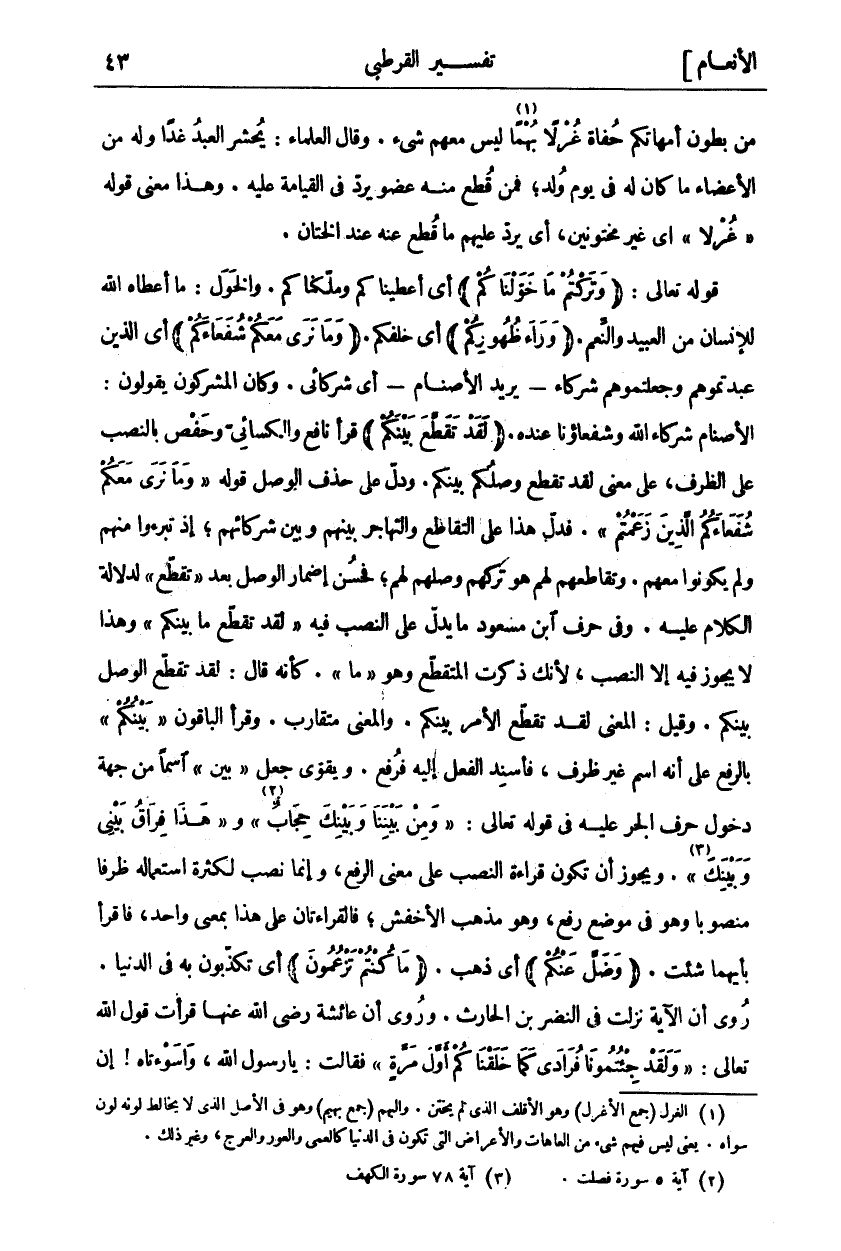 الأنعـام ] تفســـير القرطبي ٤٣
من بطون أمهاتكم حُفاة غُرْلًا بُهْمًا (١) ليس معهم شىء . وقال العلماء : يُحشر العبدُ غدًا وله من
الأعضاء ما كان له فى يوم وُلد؛ فمن قُطع منـه عضو يردّ فى القيامة عليه . وهـذا معنى قوله
« غُرْلا » اى غير مختونين، أى يردّ عليهم ما قُطع عنه عند الختان .
قوله تعالى : ﴿ وَتَرَكْتُمْ مَا خَوَّلْنَا كُمْ ﴾ أى أعطينا كم وملّكنا كم . والخَوَل : ما أعطاه الله
للإنسان من العبيد والنَّعم. ﴿ وَرَاءَ ظُهُورِكُمْ ﴾ أى خلفكم. ﴿ وَمَا نَرَى مَعَكُمْ شُفَعَاءَكُمْ ﴾ أى الذين
عبدتموهم وجعلتموهم شركاء — يريد الأصنـام — أى شركائى . وكان المشركون يقولون :
الأصنام شركاء الله وشفعاؤنا عنده. ﴿ لَقَدْ تَقَطَّعَ بَيْنَكُمْ ﴾ قرأ نافع والكسائىّ وحَفْص بالنصب
على الظرف، على معنى لقد تقطع وصلُكم بينكم. ودلّ على حذف الوصل قوله « وَمَا نَرَى مَعَكُمْ
شُفَعَاءَكُمُ الَّذِينَ زَعَمْتُمْ » . فدلّ هذا على التقاطع والتهاجر بينهم وبين شركائهم ؛ إذ تبرءوا منهم
ولم يكونوا معهم . وتقاطعهم لهم هو تركهم وصلهم لهم؛ فحسُن إضمار الوصل بعد « تقطّع» لدلالة
الكلام عليـه . وفى حرف ٱبن مسعود ما يدلّ على النصب فيه « لقد تقطّع ما بينكم » وهذا
لا يجوز فيه إلا النصب ، لأنك ذكرت المتقطّع وهو « ما » . كأنه قال : لقد تقطّع الوصل
بينكم . وقيل : المعنى لقـد تقطّع الأمر بينكم . والمعنى متقارب . وقرأ الباقون « بَيْنُكُمْ »
بالرفع على أنه اسم غير ظرف ، فأسند الفعل إليه فرُفع . ويقوّى جعل « بين » ٱسمًا من جهة
دخول حرف الجر عليـه فى قوله تعالى : « وَمِنْ بَيْنِنَا وَبَيْنِكَ حِجَابٌ (٢) » و « هَـذَا فِرَاقُ بَيْنِى
وَبَيْنِكَ (٣) » . ويجوز أن تكون قراءة النصب على معنى الرفع، وإنما نصب لكثرة استعماله ظرفا
منصوبا وهو فى موضع رفع، وهو مذهب الأخفش ؛ فالقراءتان على هذا بمعنى واحد، فاقرأ
بأيهما شئت . ﴿ وَضَلَّ عَنْكُمْ ﴾ أى ذهب . ﴿ مَا كُنْتُمْ تَزْعُمُونَ ﴾ أى تكذّبون به فى الدنيا .
رُوى أن الآية نزلت فى النضر بن الحارث . ورُوى أن عائشة رضى الله عنهـا قرأت قول الله
تعالى : « وَلَقَدْ جِئْتُمُونَا فُرَادَى كَمَا خَلَقْنَا كُمْ أَوَّلَ مَرَّةٍ » فقالت : يارسول الله ، وَاسَوْءتاه ! إن
(١) الغرل (جمع الأغرل) وهو الأقلف الذى لم يختن . والبهم (جمع بهيم) وهو فى الأصل الذى لا يخالط لونه لون
سواه . يعنى ليس فيهم شىء من العاهات والأعراض التى تكون فى الدنيا كالعمى والعور والعرج، وغير ذلك .
(٢) آية ٥ سورة فصلت . (٣) آية ٧٨ سورة الكهف